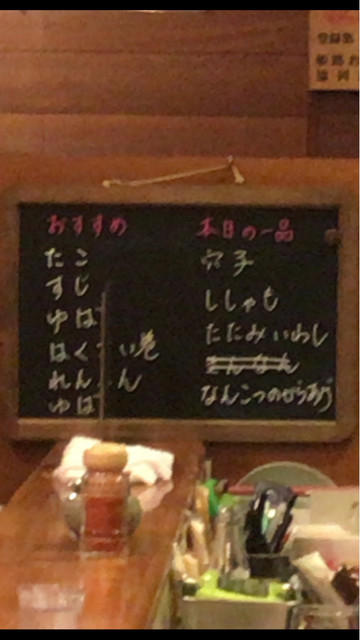 おすすめ
たこ
すじ
ゆば
はく い巻
れん ん
ゆば
本日の一品
穴子
ししゃも
たたみいわし
ぎんなん
なんこつのからあげ
登録
姫路